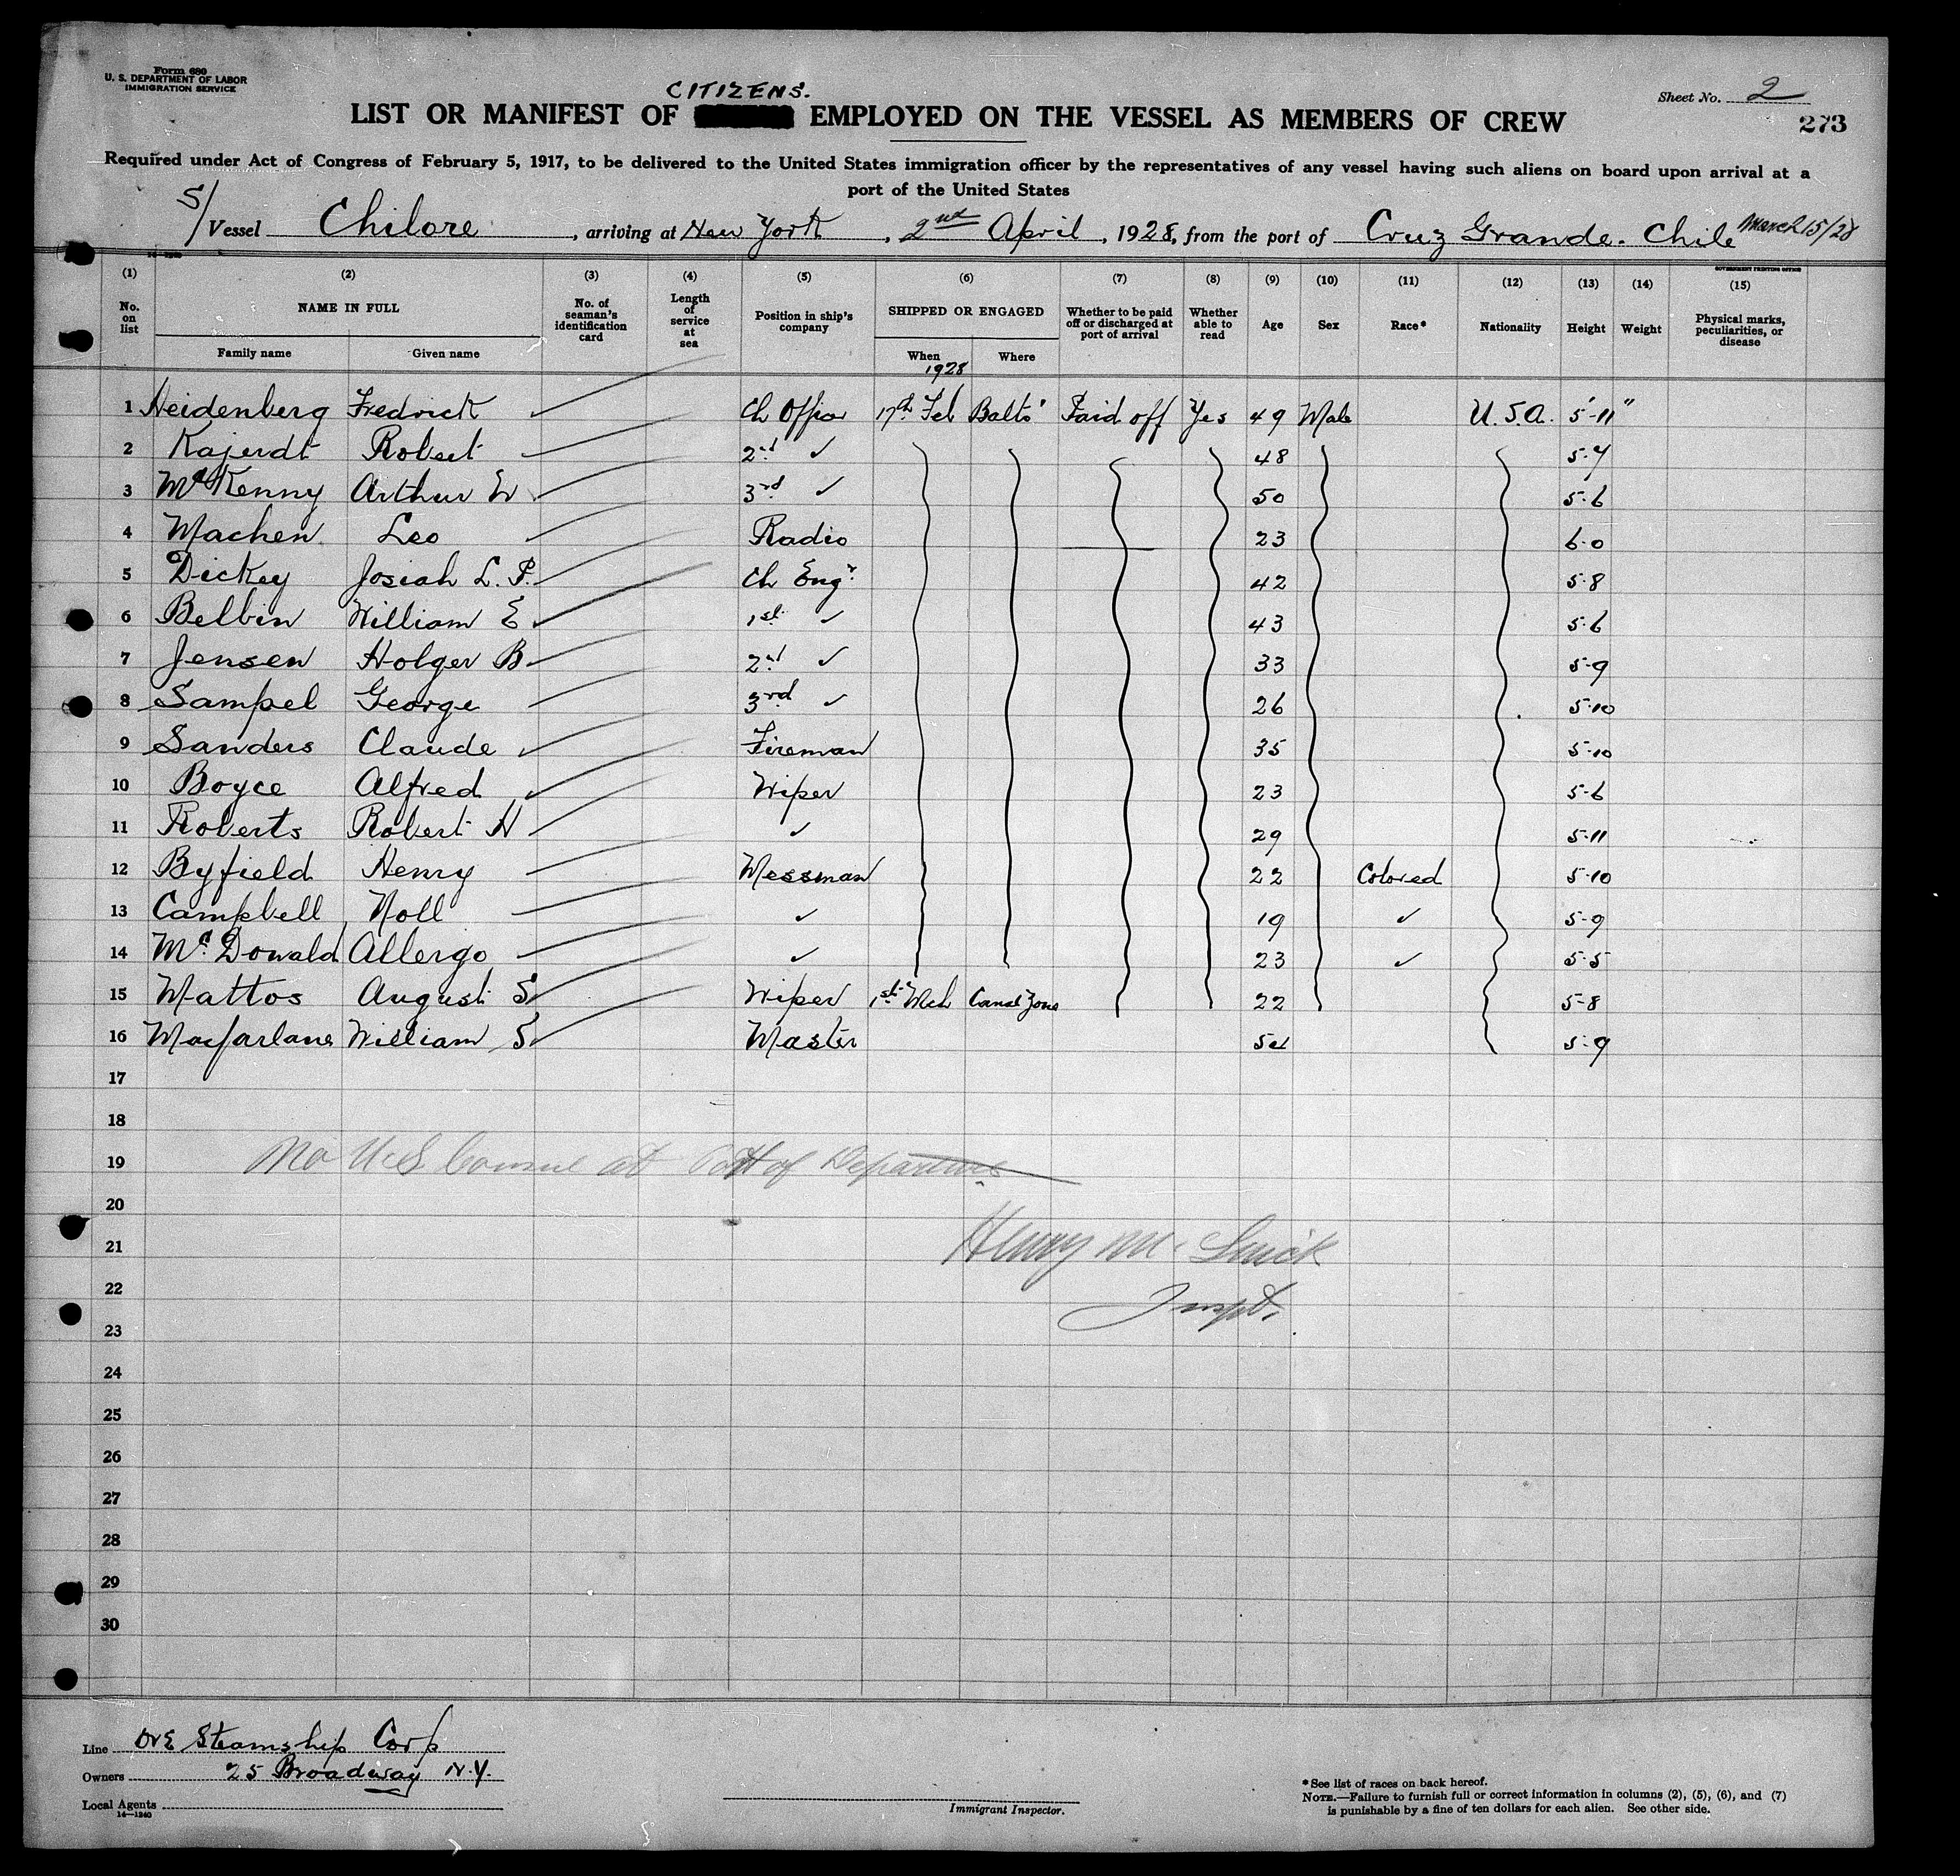 Form 680
U. S. DEPARTMENT OF LABOR
IMMIGRATION SERVICE
Sheet No. 2
273
CITIZENS.
LIST OR MANIFEST OF EMPLOYED ON THE VESSEL AS MEMBERS OF CREW
Required under Act of Congress of February 5, 1917, to be delivered to the United States immigration officer by the representatives of any vessel having such aliens on board upon arrival at a
port of the United States
S/ Vessel Chilore, arriving at New York, 2nd April, 1928, from the port of Cruz Grande. Chile March 15/28
GOVERNMENT PRINTING OFFICE
(1) (2) (3) (4) (5) (6) (7) (8) (9) (10) (11) (12) (13) (14) (15)
No. on list NAME IN FULL No. of seaman's identification card Length of service at sea Position in ship's company SHIPPED OR ENGAGED Whether to be paid off or discharged at port of arrival Whether able to read Age Sex Race* Nationality Height Weight Physical marks, peculiarities, or disease
Family name Given name When Where
1928
1 Heidenberg Fredrick Ch Officr 17th Feb Balto Paid off Yes 49 Male U.S.A. 5'-11"
2 Kajerdt Robert 2nd ✓ 48 5-7
3 McKenny Arthur W 3rd ✓ 50 5-6
4 Machen Leo Radio 23 6-0
5 Dickey Josiah L. P. Ch Engr 42 5-8
6 Belbin William E 1st ✓ 43 5-6
7 Jensen Holger B 2nd ✓ 33 5-9
8 Sampel George 3rd ✓ 26 5-10
9 Sanders Claude Fireman 35 5-10
10 Boyce Alfred Wiper 23 5-6
11 Roberts Robert H ✓ 29 5-11
12 Byfield Henry Messman 22 Colored 5-10
13 Campbell Noll ✓ 19 ✓ 5-9
14 Mc Donald Allergo ✓ 23 ✓ 5-5
15 Mattos August S Wiper 1st Mch Canal Zone 22 5-8
16 Macfarlane William S Master 5-9
17
18
19 No U.S Consul at Port of Departure
20
21 Henry M.
22
Inspt.
23
24
25
26
27
28
29
30
Line Ore Steamship Corp
Owners 25 Broadway N.Y.
Local Agents
14—1240
Immigrant Inspector.
*See list of races on back hereof.
NOTE.—Failure to furnish full or correct information in columns (2), (5), (6), and (7)
is punishable by a fine of ten dollars for each alien. See other side.